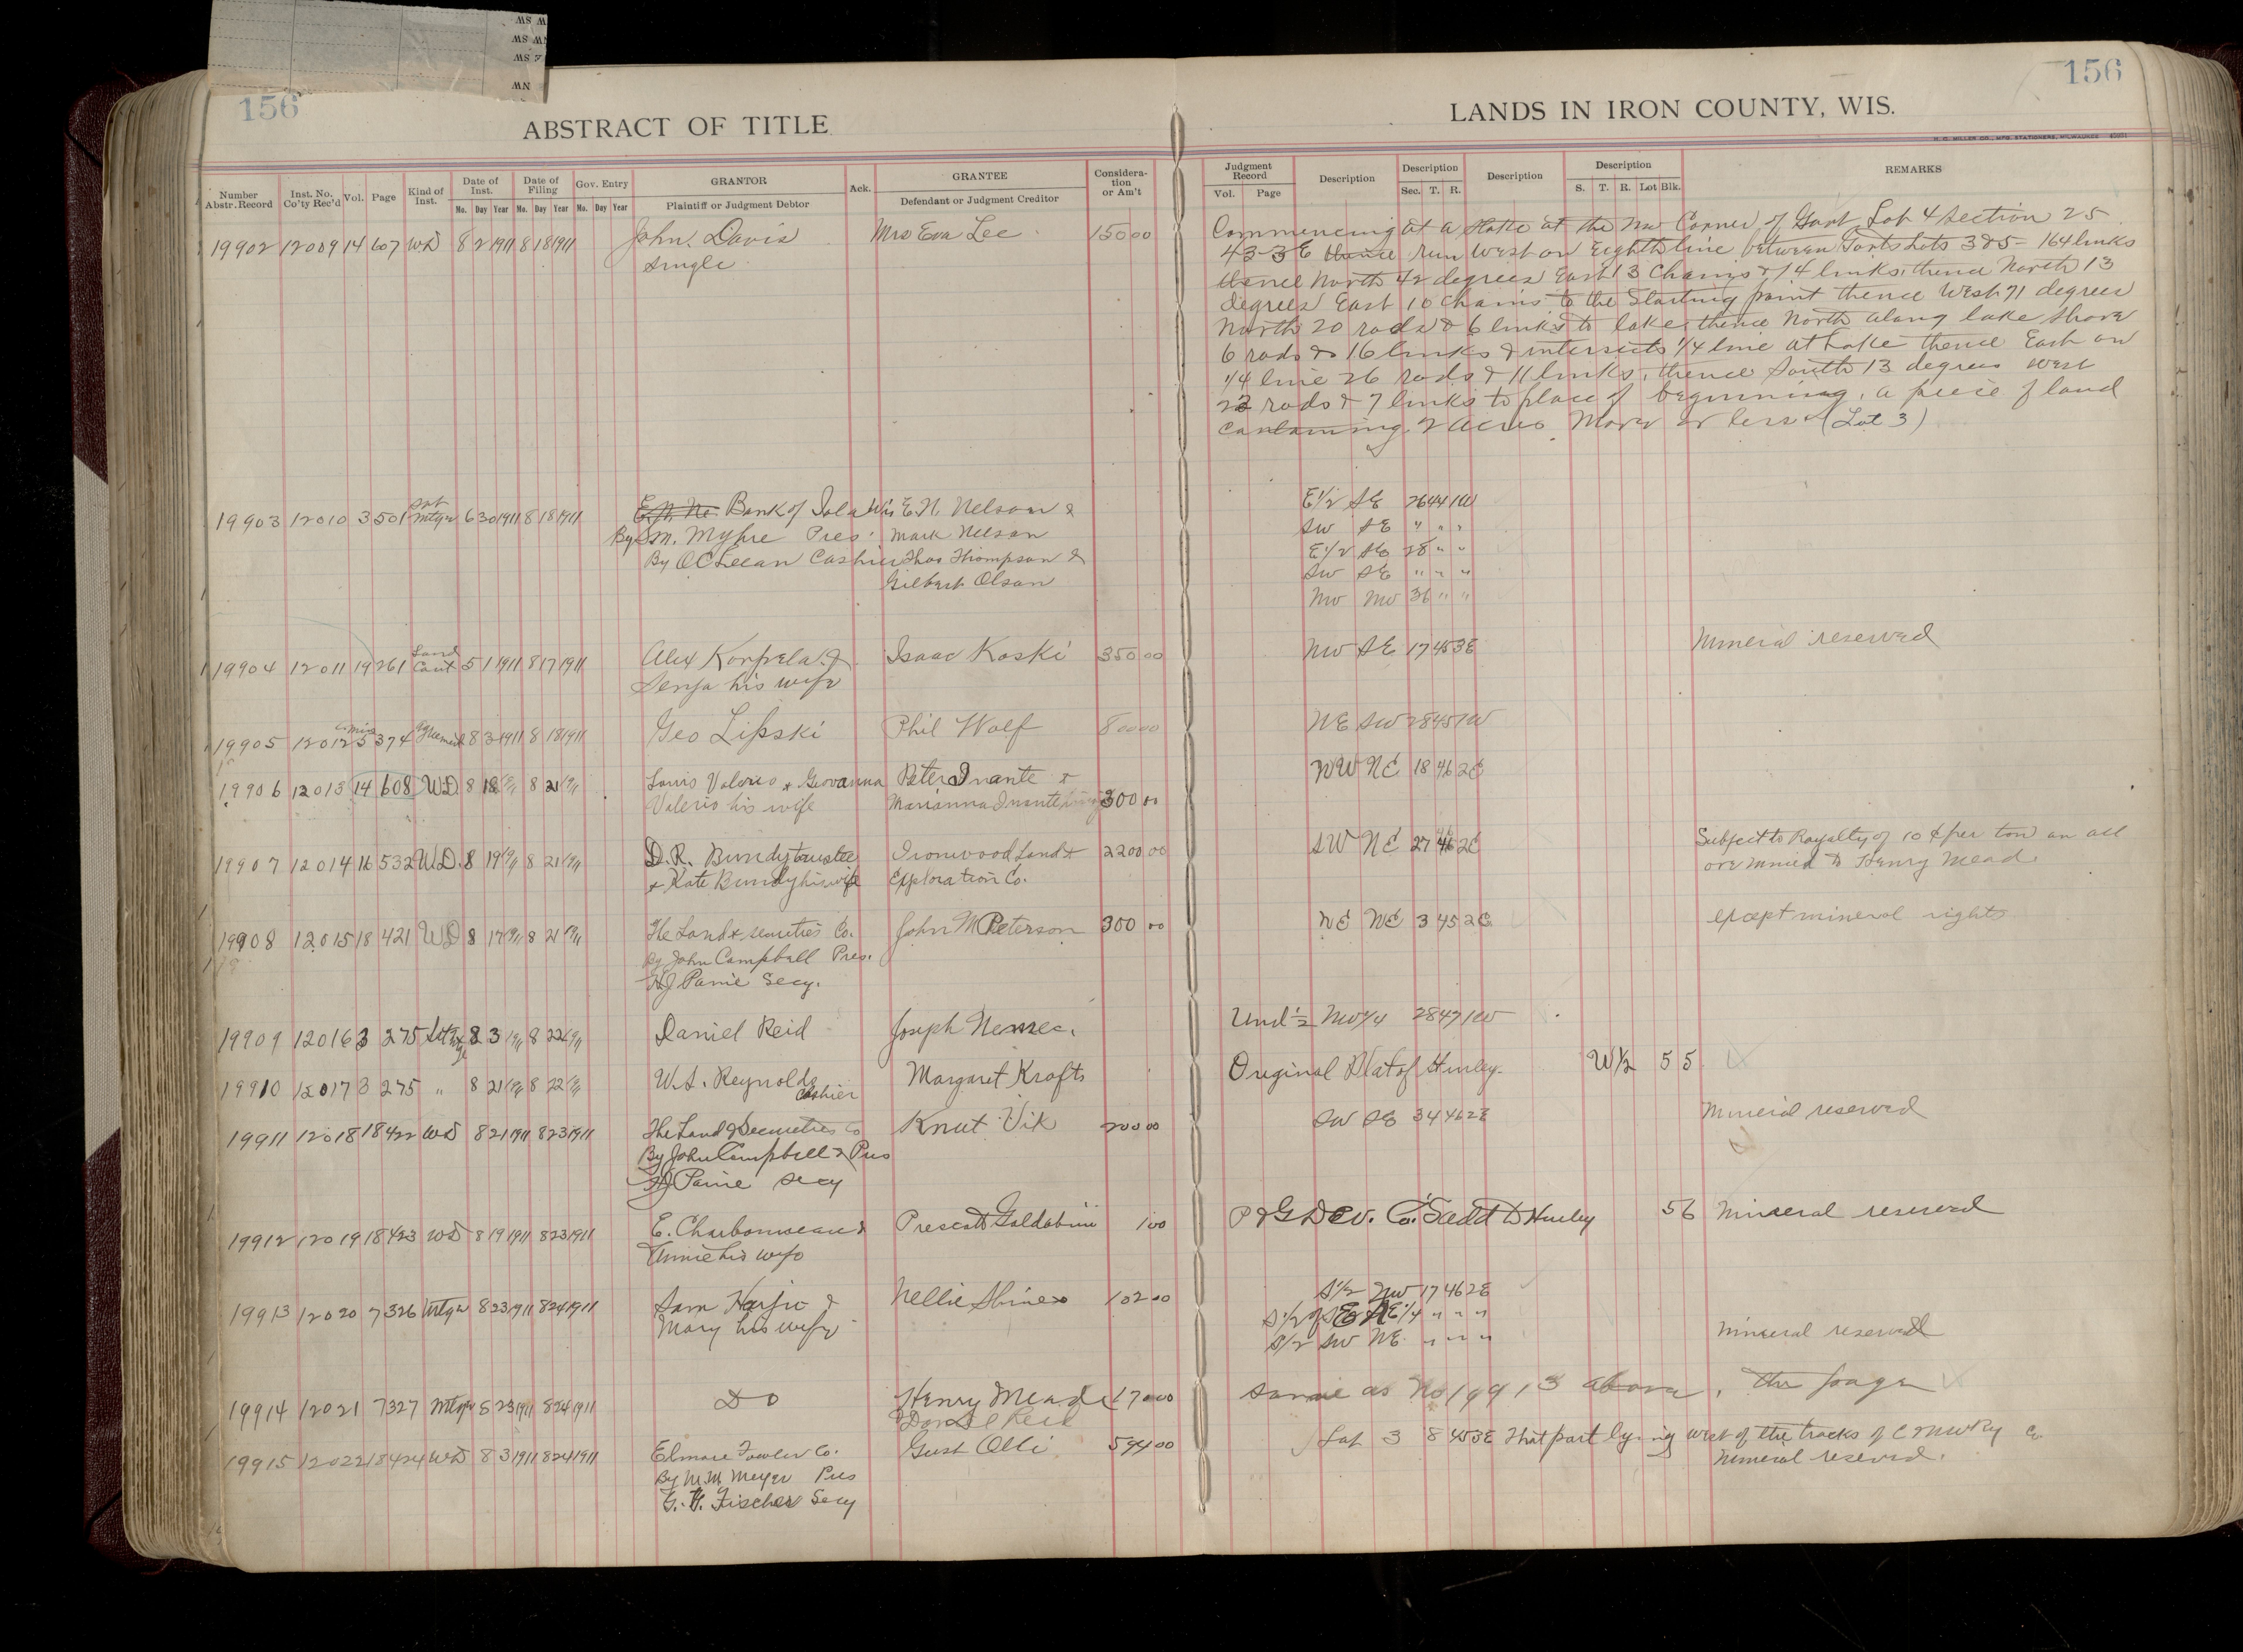 WS WS
WS
WS
WN
156
156
ABSTRACT OF TITLE
LANDS IN IRON COUNTY, WIS.
H. C. MILLER CO., MFG. STATIONERS, MILWAUKEE
Number Abstr. Record Inst. No. Co'ty Rec'd Vol. Page Kind of Inst. Date of Inst. Date of Filing Gov. Entry GRANTOR Ack. GRANTEE Considera-tion or Am't Judgment Record Description Description Description Description REMARKS
Mo. Day Year Mo. Day Year Mo. Day Year Plaintiff or Judgment Debtor Defendant or Judgment Creditor Vol. Page Sec. T. R. S. T. R. Lot Blk.
19902 12009 14 607 WD 8 2 1911 8 18 1911 John Davis Mrs Eva Lee 150 00 Commencing at a stake at the NW Corner of Govt Lot 4 Section 25
single 43-3E thence run West on Eighth line between Govts Lots 3 & 5 - 164 links
thence North 42 degrees East 13 Chains & 14 links, thence North 13
degrees East 10 chains to the Starting point thence West 71 degrees
North 20 rods & 6 links to lake thence North along lake shore
6 rods & 16 links & intersects 1/4 line at Lake thence East on
1/4 line 26 rods & 11 links, thence South 13 degrees West
22 rods & 7 links to place of beginning, a piece of land
containing 2 acres more or less (Lot 3)
19903 12010 3 501 Sat Mtge 6 30 1911 8 18 1911 Bank of Iola Wis E.N. Nelson & E1/2 SE 26 44 1W
By S.M. Myhre Pres. Mark Nelson SW SE " " "
By O C Leean Cashier Thos Thompson & E1/2 SE 28 " "
Gilbert Olson SW SE " " "
NW NW 36 " "
19904 12011 19 261 Land Cont 5 1 1911 8 17 1911 Alex Korpela & Isaac Koski 350 00 NW SE 17 45 3E Mineral reserved
Senja his wife
19905 12012 Mis 5 374 Agreement 8 3 1911 8 18 1911 Geo Lipski Phil Wolf 800 00 NE SW 28 45 1W
19906 12013 14 608 W.D. 8 18 1911 8 21 1911 Louis Valerio & Geovanna Peter Inante & NW NE 18 46 2E
Valerio his wife Marianna Inante 300 00
19907 12014 16 532 W.D. 8 19 1911 8 21 1911 D.R. Bundy trustee Ironwood Land & 2200 00 SW NE 27 46 2E Subject to Royalty of 10 ¢ per ton on all
& Kate Bundy his wife Exploration Co. ore mined to Henry Mead.
19908 12015 18 421 WD 8 17 1911 8 21 1911 The Land & securities Co. John M Peterson 300 00 NE NE 3 45 2E except mineral rights
By John Campbell Pres.
HJ Paine Secy.
19909 12016 3 275 Sat Mtge 8 3 1911 8 22 1911 Daniel Reid Joseph Nemec. Und 1/2 NW1/4 28 47 1W
19910 12017 3 275 " 8 21 1911 8 22 1911 W.S. Reynolds Margaret Krafts Original Plat of Hurley. W1/2 5 5
Cashier
19911 12018 18 422 WD 8 21 1911 8 23 1911 The Land & Securities Co Knut Vik 200 00 SW SE 34 46 2E Mineral reserved
By John Campbell & Pres
HJ Paine Secy
19912 12019 18 423 WD 8 19 1911 8 23 1911 E. Charbonneau & Prescott Goldabine 1 00 P & G Dev. Co. 's add to Hurley 5 6 Mineral reserved
Annie his wife
19913 12020 7 326 Mtge 8 23 1911 8 24 1911 Sam Harju & Nellie Shines 102 00 S1/2 NW 17 46 2E
Mary his wife S1/2 of SE NE1/4 " " "
S/2 SW NE " " " Mineral reserved
19914 12021 7 327 Mtge 8 23 1911 8 24 1911 DO Henry Meade 170 00 Same as No 19913 above, this page
& Daniel Reid
19915 12022 18 424 WD 8 3 1911 8 24 1911 Elmore Fowler Co. Gust Olli 594 00 Lot 3 8 45 3E That part lying west of the tracks of C & NW Ry Co.
By M.M. Meyer Pres Mineral reserved.
G. H. Fischer Secy